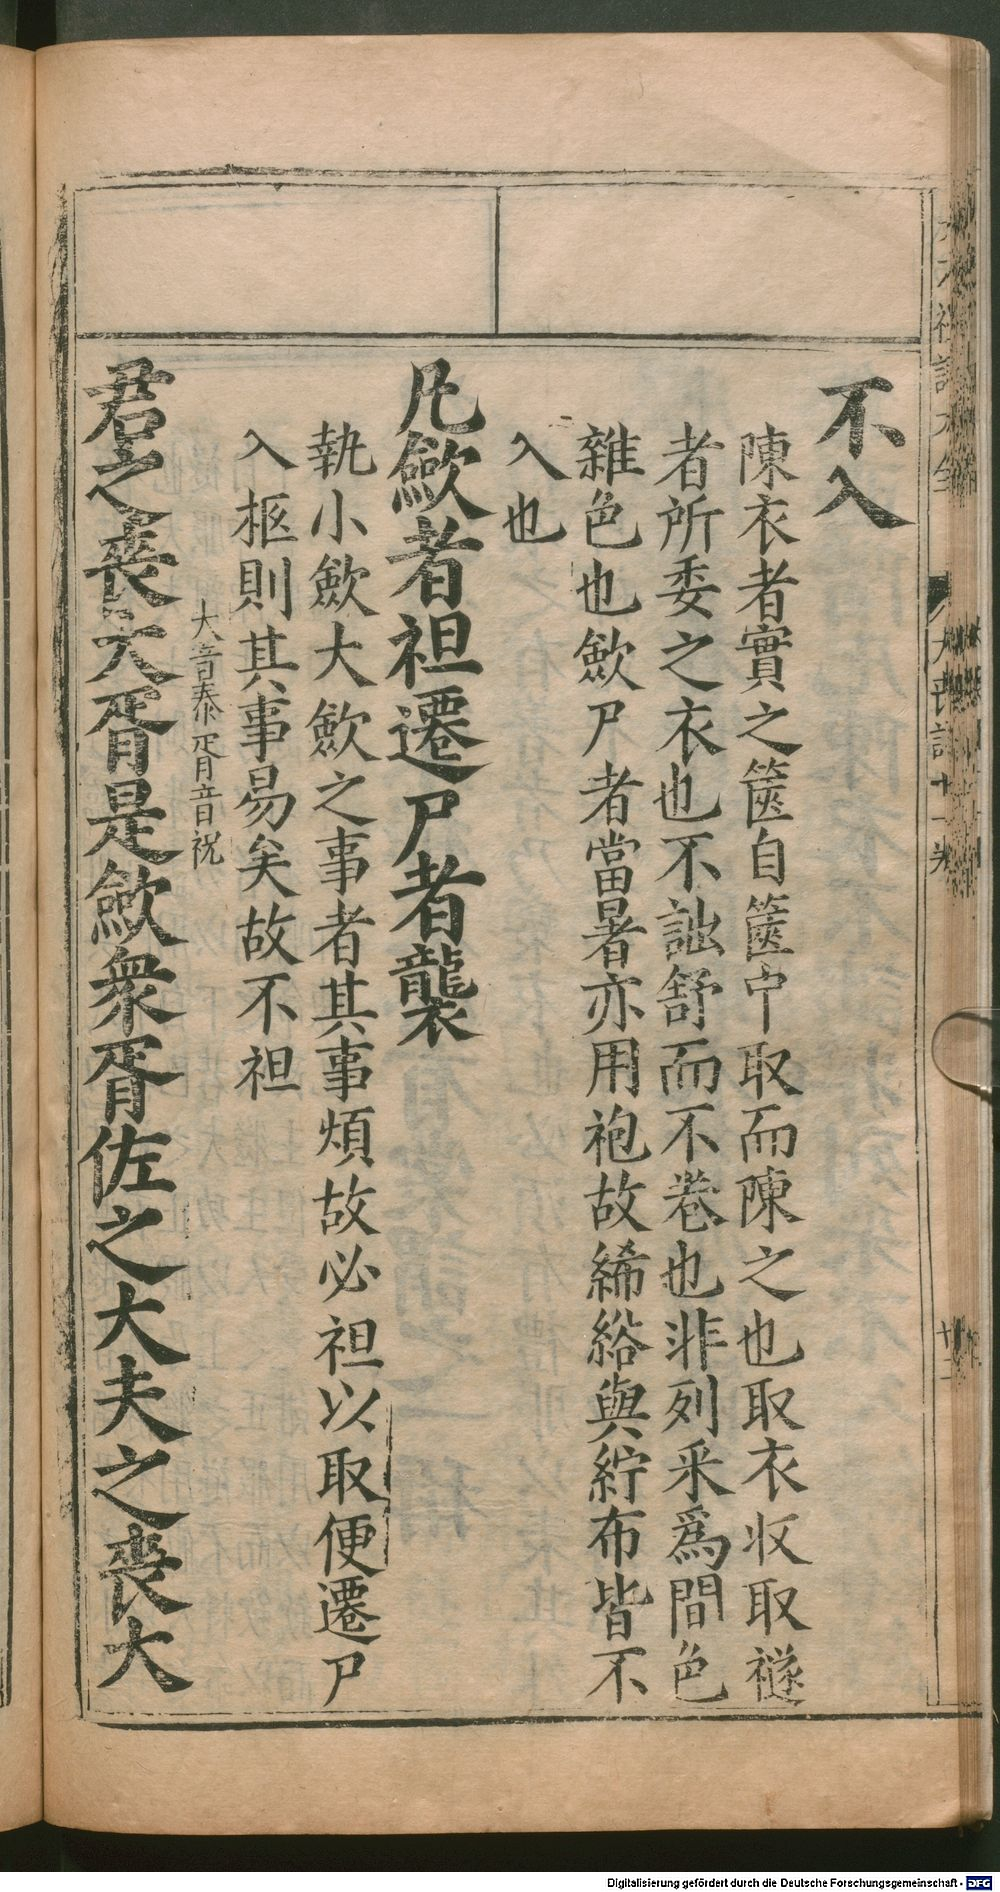 不入
陳衣者實之篋自篋中取而陳之也取衣收取襚
者所委之衣也不詘舒而不卷也非列采爲間色
雜色也斂尸者當暑亦用袍故絺綌與紵布皆不
入也
凡斂者袒遷尸者襲
執小斂大斂之事者其事煩故必袒以取便遷尸
入柩則其事易矣故不袒
君之喪大胥是斂衆胥佐之大夫之喪大
大音泰胥音祝
Digitalisierung gefördert durch die Deutsche Forschungsgemeinschaft - DFG